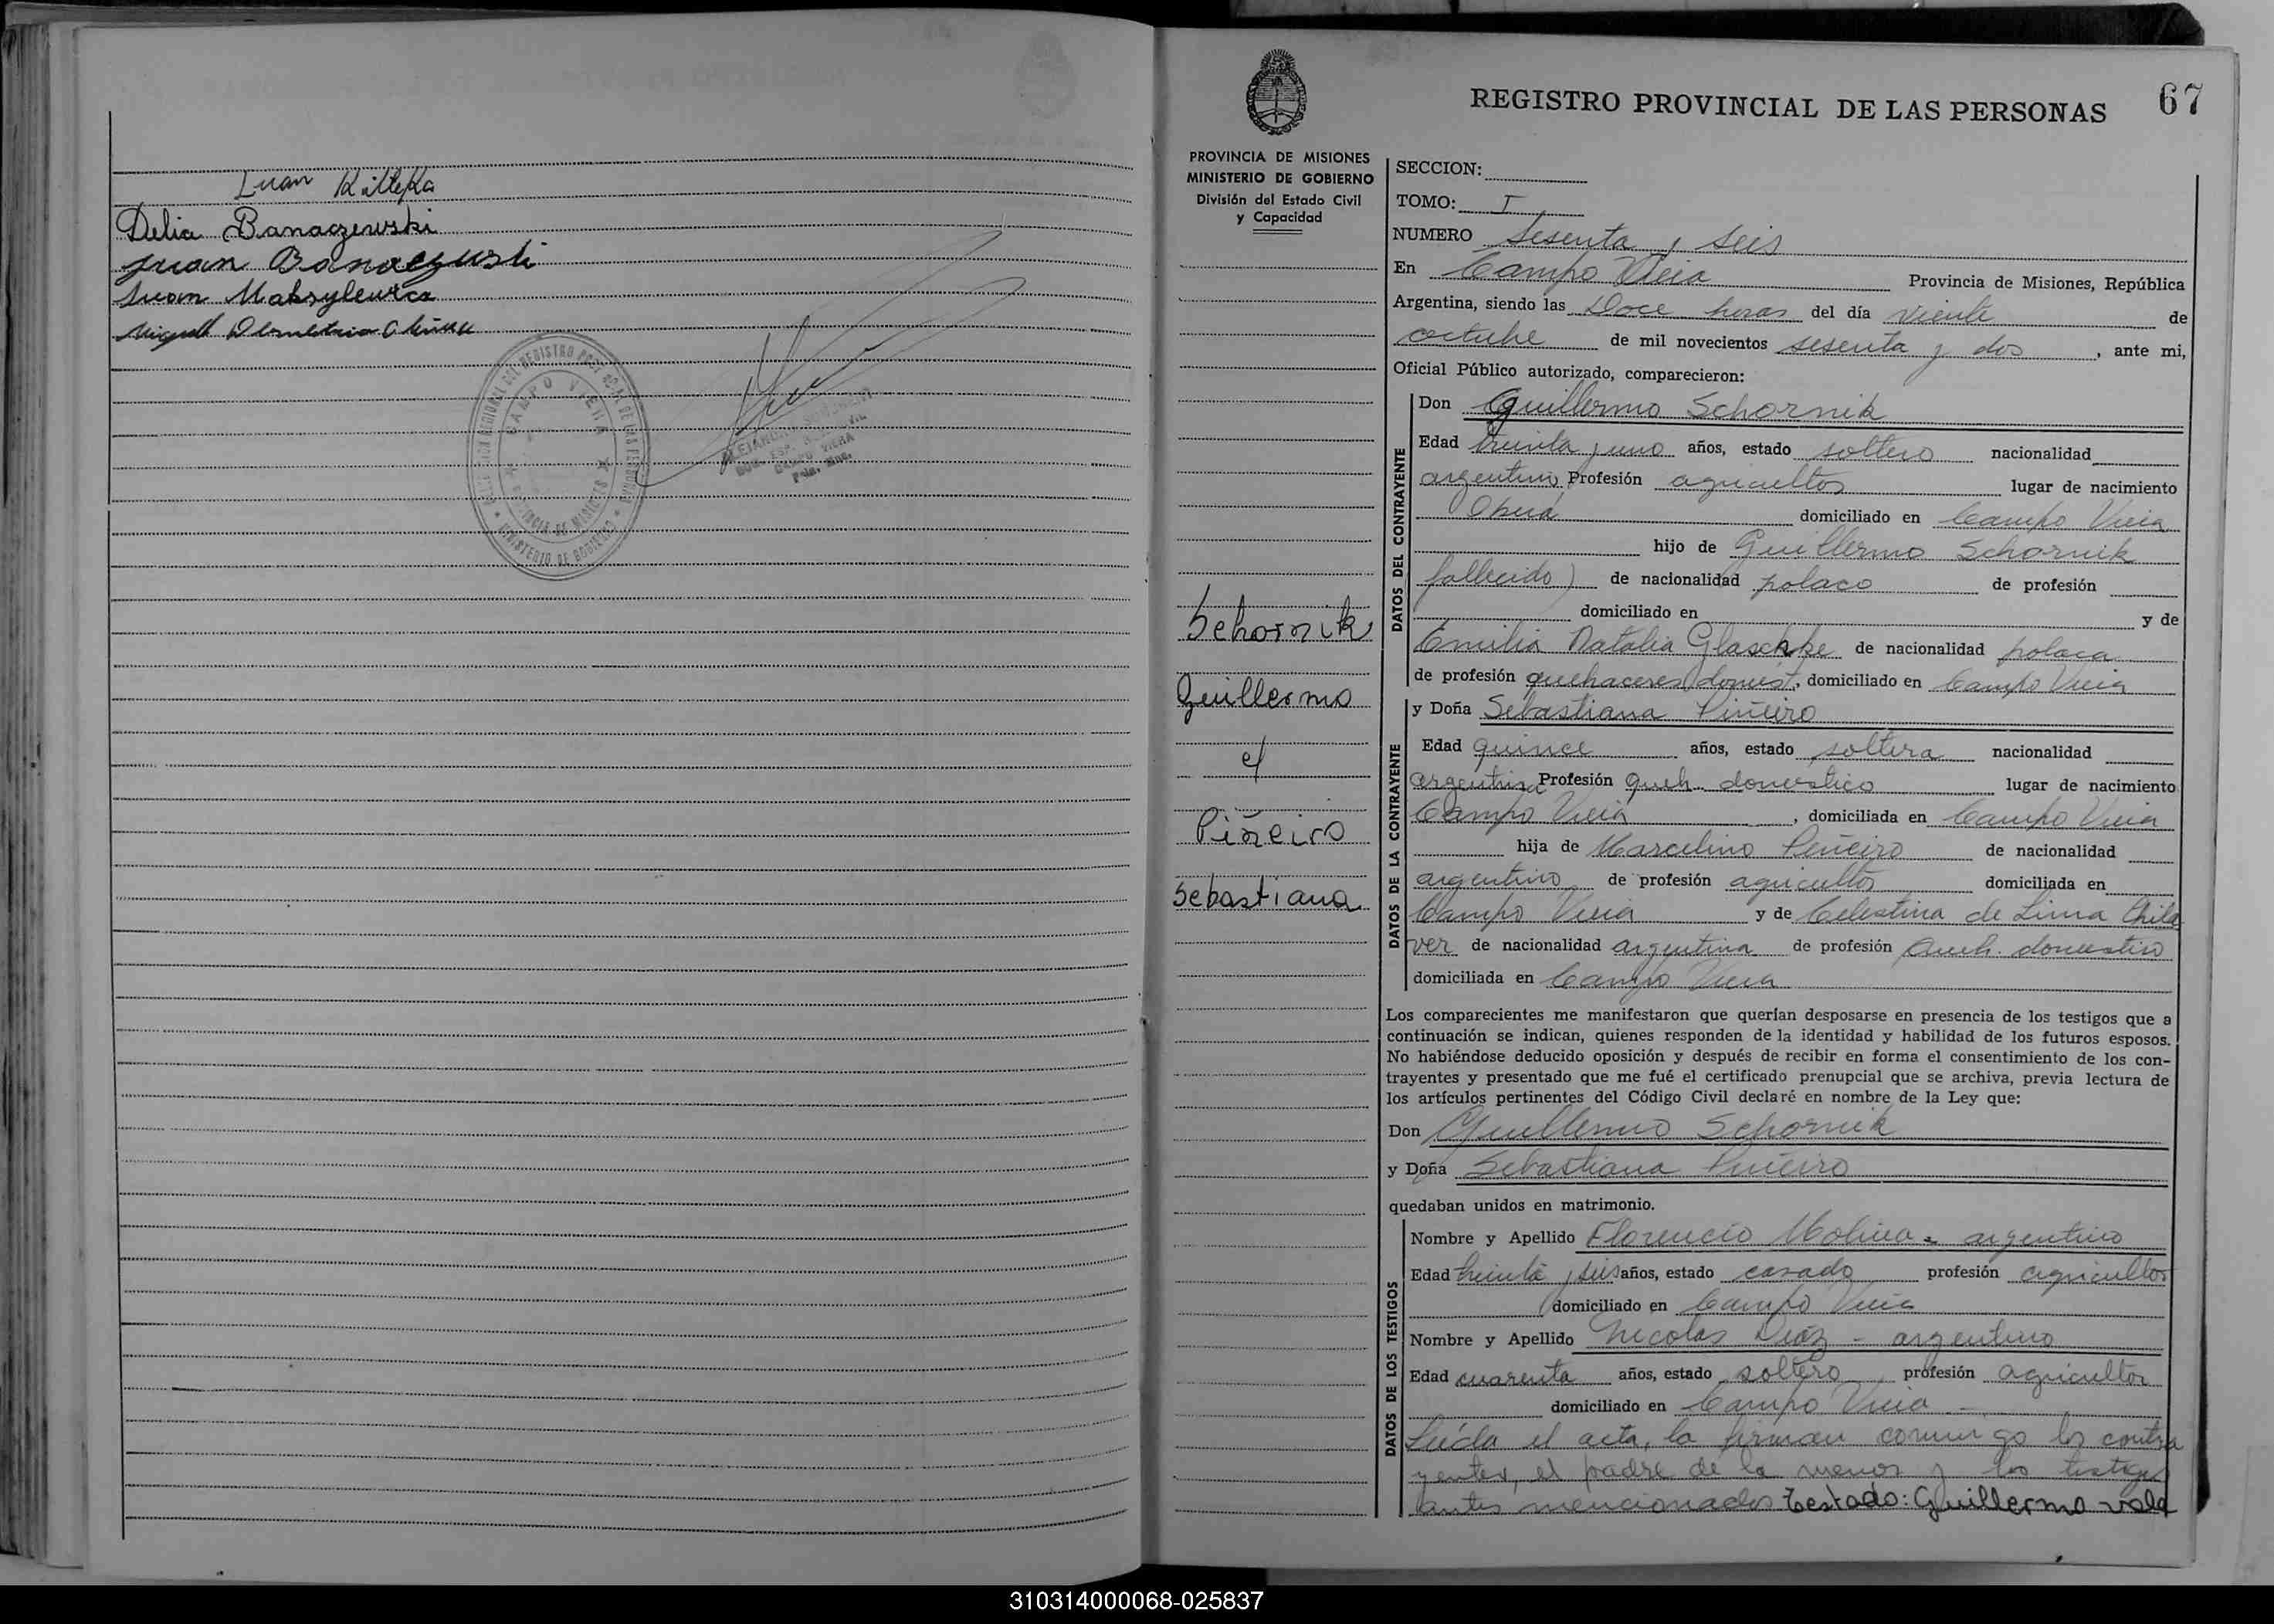 Juan Kilteka
Delia Banaczewski
Juan Banaczuski
Juan Maksylewicz
Miguel Demetrio
CAMPO VIERA
MINISTERIO DE GOBIERNO
CAMPO VIERA
67
REGISTRO PROVINCIAL DE LAS PERSONAS
PROVINCIA DE MISIONES
MINISTERIO DE GOBIERNO
División del Estado Civil
y Capacidad
Schornik
Guillermo
c/
Piñeiro
Sebastiana
SECCION:
TOMO: I
NUMERO Sesenta y Seis
En Campo Viera Provincia de Misiones, República
Argentina, siendo las Doce horas del día viente de
octubre de mil novecientos sesenta y dos, ante mi,
Oficial Público autorizado, comparecieron:
DATOS DEL CONTRAYENTE
Don Guillermo Schornik
Edad treinta y uno años, estado soltero nacionalidad
argentino Profesión agricultor lugar de nacimiento
Oberá domiciliado en Campo Viera
hijo de Guillermo Schornik
fallecido) de nacionalidad polaco de profesión
domiciliado en y de
Emilia Natalia Glaschke de nacionalidad polaca
de profesión quehaceres domest, domiciliado en Campo Viera
DATOS DE LA CONTRAYENTE
y Doña Sebastiana Piñeiro
Edad quince años, estado soltera nacionalidad
argentina Profesión queh. domestico lugar de nacimiento
Campo Viera, domiciliada en Campo Viera
hija de Marcelino Piñeiro de nacionalidad
argentino de profesión agricultor domiciliada en
Campo Viera y de Celestina de Lima Chila
ver de nacionalidad argentina de profesión Queh. domestico
domiciliada en Campo Viera
Los comparecientes me manifestaron que querían desposarse en presencia de los testigos que a
continuación se indican, quienes responden de la identidad y habilidad de los futuros esposos.
No habiéndose deducido oposición y después de recibir en forma el consentimiento de los con-
trayentes y presentado que me fué el certificado prenupcial que se archiva, previa lectura de
los artículos pertinentes del Código Civil declaré en nombre de la Ley que:
Don Guillermo Schornik
y Doña Sebastiana Piñeiro
quedaban unidos en matrimonio.
DATOS DE LOS TESTIGOS
Nombre y Apellido Florencio Molina - argentino
Edad treinta y seis años, estado casado profesión agricultor
domiciliado en Campo Viera
Nombre y Apellido Nicolas Diaz - argentino
Edad cuarenta años, estado soltero profesión agricultor
domiciliado en Campo Viera -
Leída el acta, la firman conmigo los contra
yentes, el padre de la menor y los testigos
antes mencionados Testado: Guillermo vale
310314000068-025837